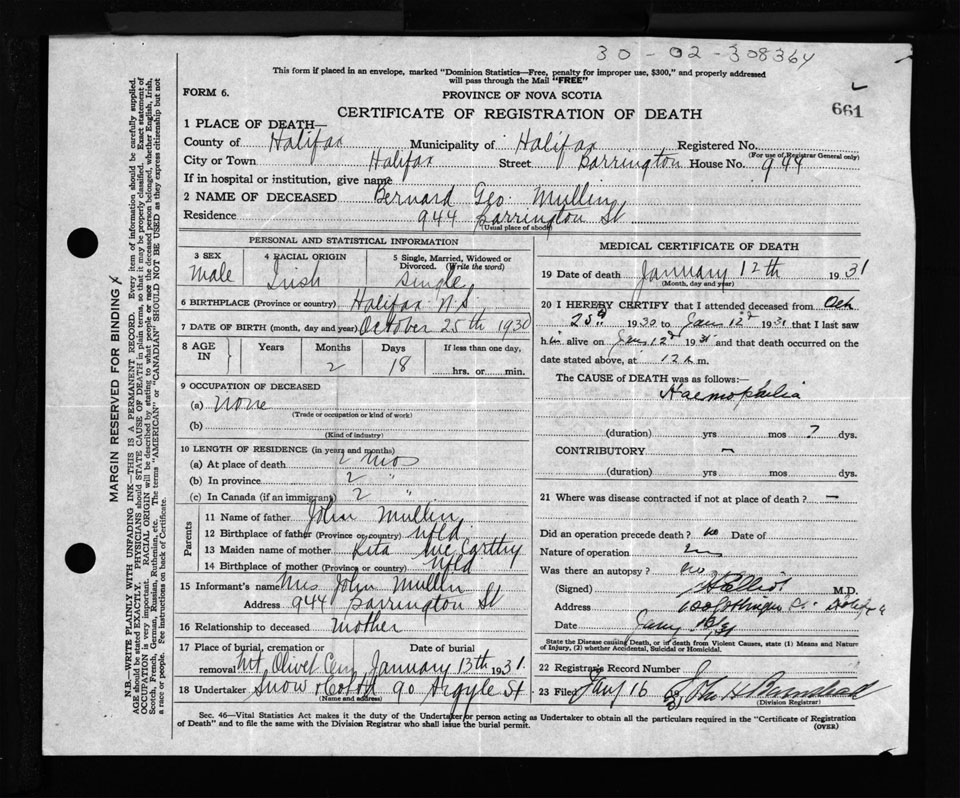 30-02-308364
This form if placed in an envelope, marked "Dominion Statistics—Free, penalty for improper use, $300," and properly addressed
will pass through the Mail "FREE"
FORM 6.
PROVINCE OF NOVA SCOTIA
661
CERTIFICATE OF REGISTRATION OF DEATH
1 PLACE OF DEATH—
County of Halifax Municipality of Halifax Registered No.
(For use of Registrar General only)
City or Town Halifax Street Barrington House No. 944
If in hospital or institution, give name
2 NAME OF DECEASED Bernard Geo. Mullin
Residence 944 Barrington St
(Usual place of abode)
PERSONAL AND STATISTICAL INFORMATION
3 SEX Male
4 RACIAL ORIGIN Irish
5 Single, Married, Widowed or Divorced. (Write the word) Single
6 BIRTHPLACE (Province or country) Halifax N.S.
7 DATE OF BIRTH (month, day and year) October 25th 1930
8 AGE IN Years Months 2 Days 18 If less than one day, hrs. or min.
9 OCCUPATION OF DECEASED
(a) None
(Trade or occupation or kind of work)
(b)
(Kind of industry)
10 LENGTH OF RESIDENCE (in years and months)
(a) At place of death 2 mos
(b) In province 2 "
(c) In Canada (if an immigrant) 2 "
Parents
11 Name of father John Mullin
12 Birthplace of father (Province or country) Nfld.
13 Maiden name of mother Rita McCarthy
14 Birthplace of mother (Province or country) Nfld
15 Informant's name Mrs John Mullin
Address 944 Barrington St
16 Relationship to deceased Mother
17 Place of burial, cremation or removal Mt. Olivet Cem Date of burial January 13th 1931.
18 Undertaker Snow & Co Ltd 90 Argyle St
(Name and address)
MEDICAL CERTIFICATE OF DEATH
19 Date of death January 12th 1931
(Month, day and year)
20 I HEREBY CERTIFY that I attended deceased from Oct
25th 1930 to Jan 12 1931 that I last saw
him alive on Jan 12 1931 and that death occurred on the
date stated above, at 12 m.
The CAUSE OF DEATH was as follows:—
Haemophilia
(duration) yrs mos ? dys.
CONTRIBUTORY —
(duration) yrs. mos. dys.
21 Where was disease contracted if not at place of death? —
Did an operation precede death? no Date of
Nature of operation
Was there an autopsy? no
(Signed) M.D.
Address
Date
State the Disease causing Death, or in death from Violent Causes, state (1) Means and Nature
of Injury, (2) whether Accidental, Suicidal or Homicidal.
22 Registrar's Record Number
23 Filed Jany 16 31 John H
(Division Registrar)
Sec. 46—Vital Statistics Act makes it the duty of the Undertaker or person acting as Undertaker to obtain all the particulars required in the "Certificate of Registration
of Death" and to file the same with the Division Registrar who shall issue the burial permit.
(OVER)
MARGIN RESERVED FOR BINDING
N.B.—WRITE PLAINLY WITH UNFADING INK—THIS IS A PERMANENT RECORD. Every item of information should be carefully supplied.
AGE should be stated EXACTLY. PHYSICIANS should STATE CAUSE OF DEATH in plain terms, so that it may be properly classified. Exact statement of
OCCUPATION is very important. RACIAL ORIGIN will be described by stating to what people or race the deceased person belonged, whether English, Irish,
Scotch, French, German, Russian, Ruthenian, etc. The terms "AMERICAN" or "CANADIAN" SHOULD NOT BE USED as they express citizenship but not
a race or people. See instructions on back of Certificate.